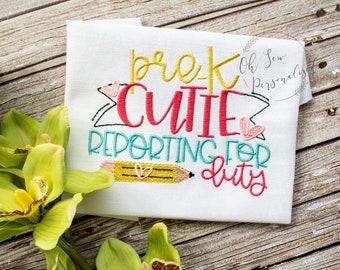 pre-K
CUTIE
REPORTING FOR
duty
Oh Sew
Personalized